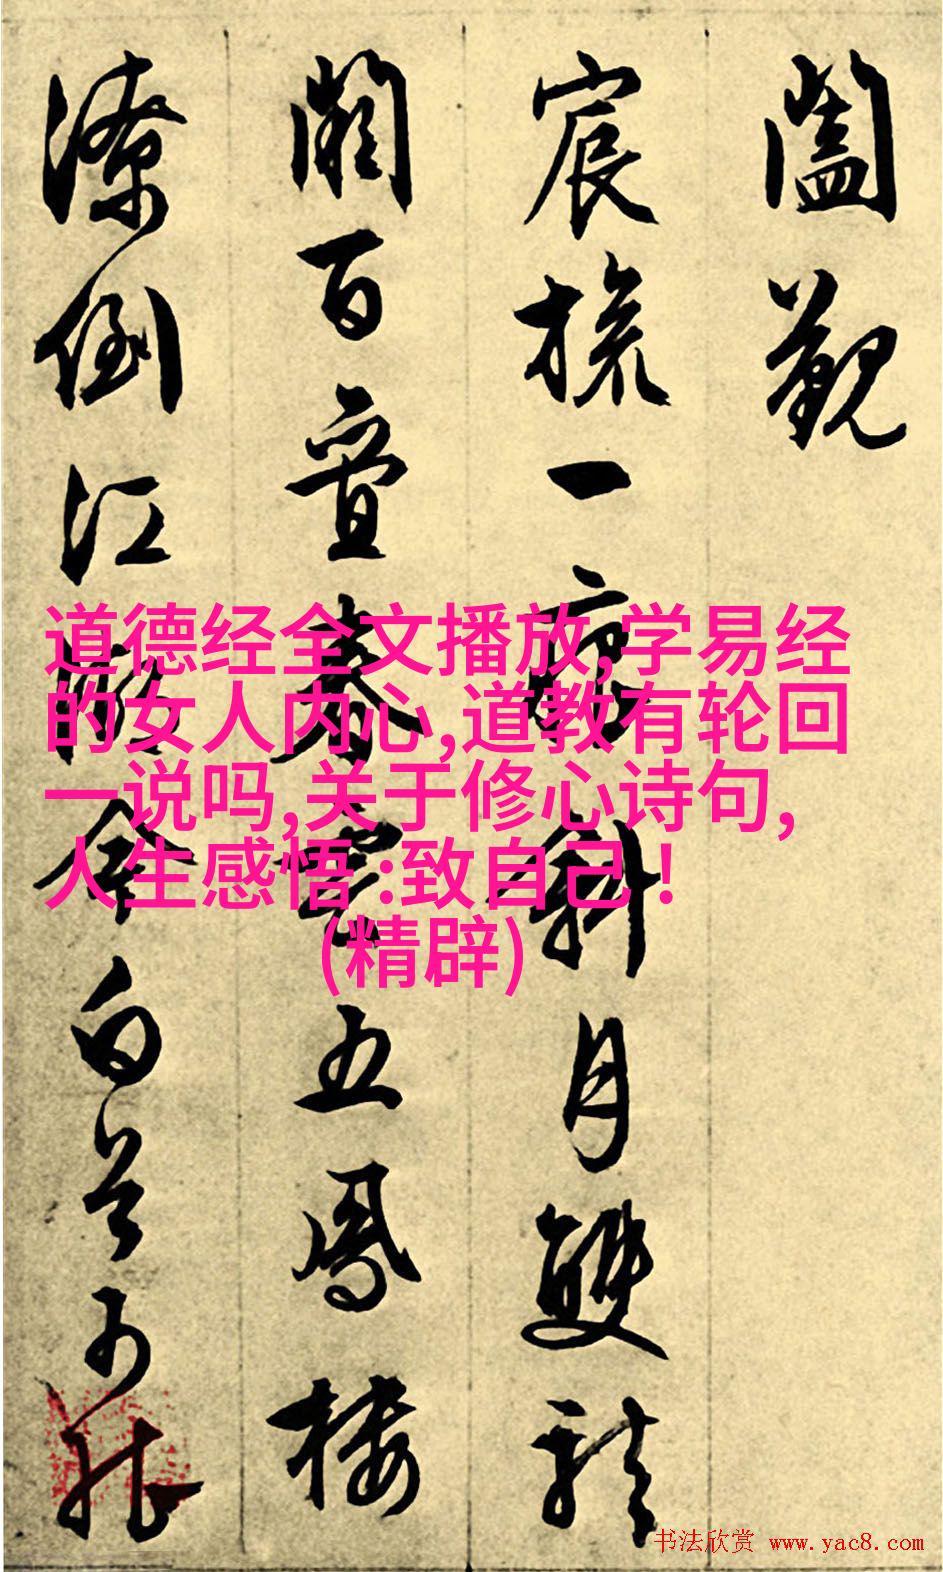 闔覲
宸旒一痕斜月雙龍
闕百疊春雲五鳳樓
潦倒江白首可能
道德经全文播放,学易经
的女人内心,道教有轮回
一说吗,关于修心诗句,
人生感悟 :致自己！
(精辟)
书法欣赏 www.yac8.com